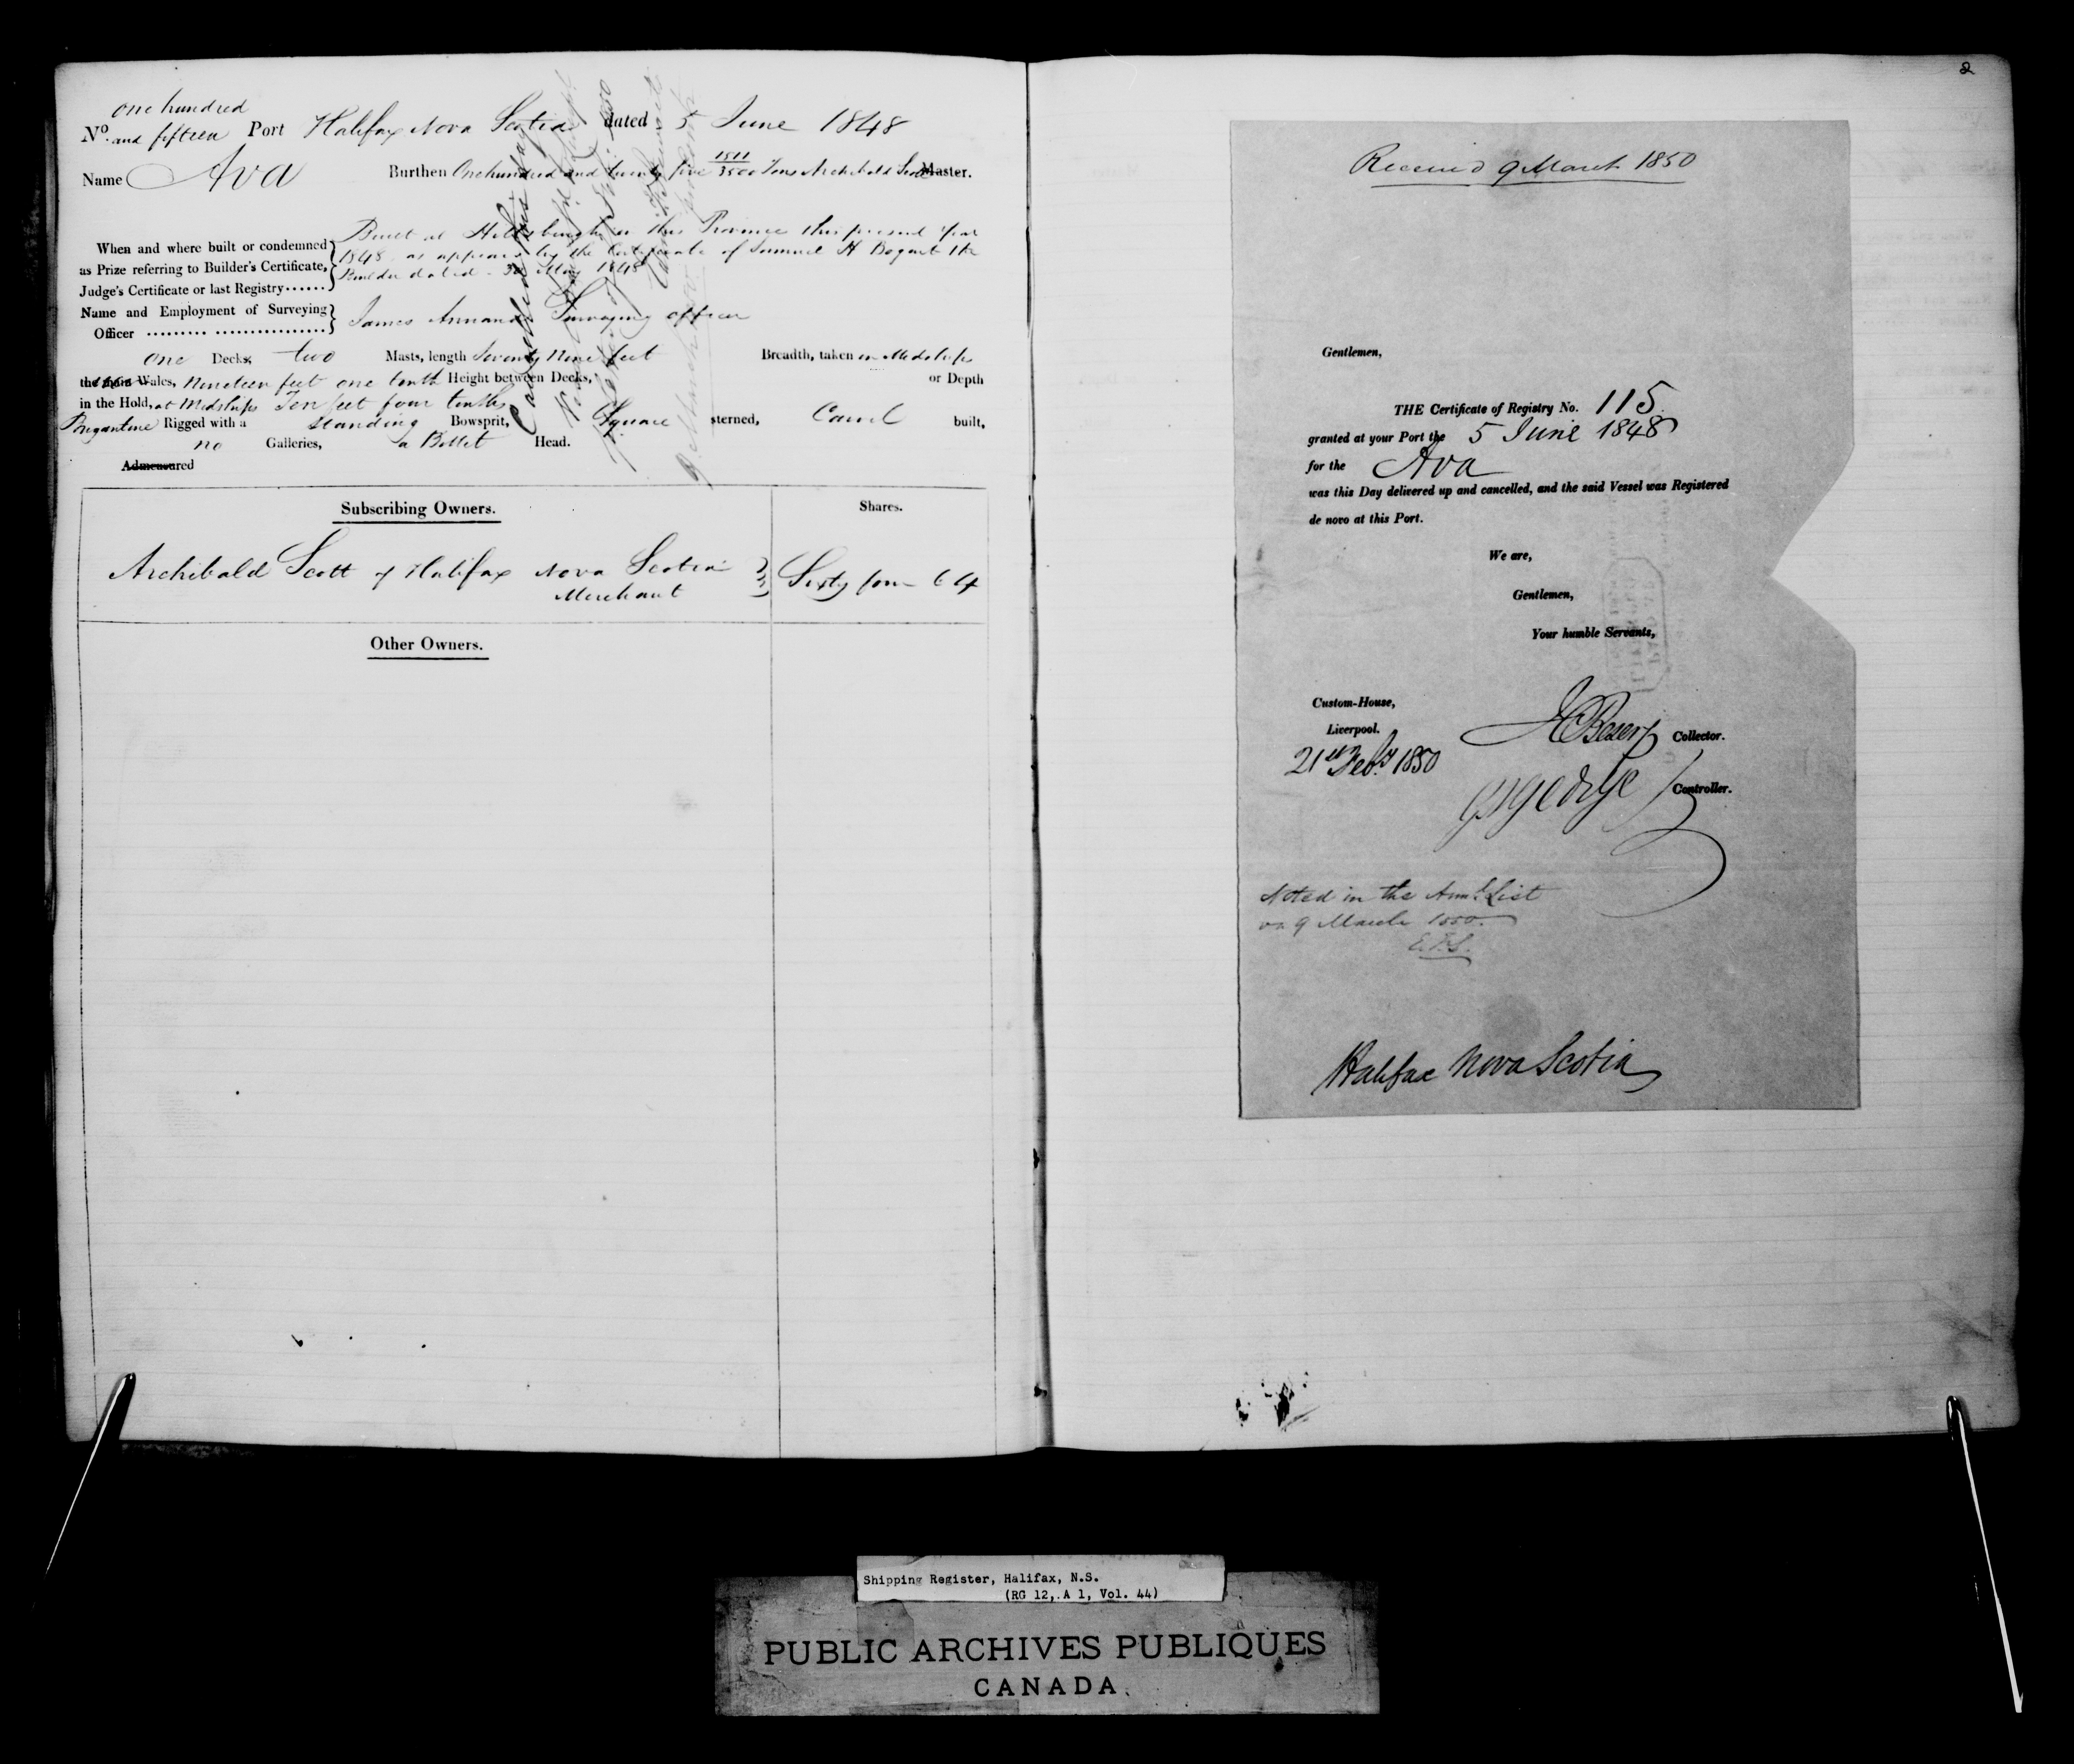 one hundred
No. and fifteen Port Halifax Nova Scotia dated 5 June 1848
Name Ava Burthen One hundred and twenty five 1511/3500 Tons Archibald Master.
Built at Hillsburgh in this Province this present Year
When and where built or condemned 1848 as appears by the Certificate of Samuel H Bogart the
as Prize referring to Builder's Certificate, Builder dated May 1848
Judge's Certificate or last Registry
Name and Employment of Surveying
Officer James Annand Surveying officer
one Decks, two Masts, length Seventy Nine feet Breadth, taken in Midships
the main Wales, Nineteen feet one tenth Height between Decks, or Depth
in the Hold, at Midships Ten feet four tenths
Brigantine Rigged with a Standing Bowsprit, Square sterned, Carvel built,
no Galleries, a Billet Head.
Admeasured
Cancelled
9 March 1850
Subscribing Owners. Shares.
Archibald Scott of Halifax Nova Scotia
Merchant Sixty four 64
Other Owners.
2
Received 9 March 1850
Gentlemen,
THE Certificate of Registry No. 115
granted at your Port the 5 June 1848
for the Ava
was this Day delivered up and cancelled, and the said Vessel was Registered
de novo at this Port.
We are,
Gentlemen,
Your humble Servants,
Custom-House,
Liverpool. Collector.
21st Feby 1850
Controller.
Noted in the Annl. List
on 9 March 1850.
Halifax Nova Scotia
Shipping Register, Halifax, N.S.
(RG 12, A 1, Vol. 44)
PUBLIC ARCHIVES PUBLIQUES
CANADA